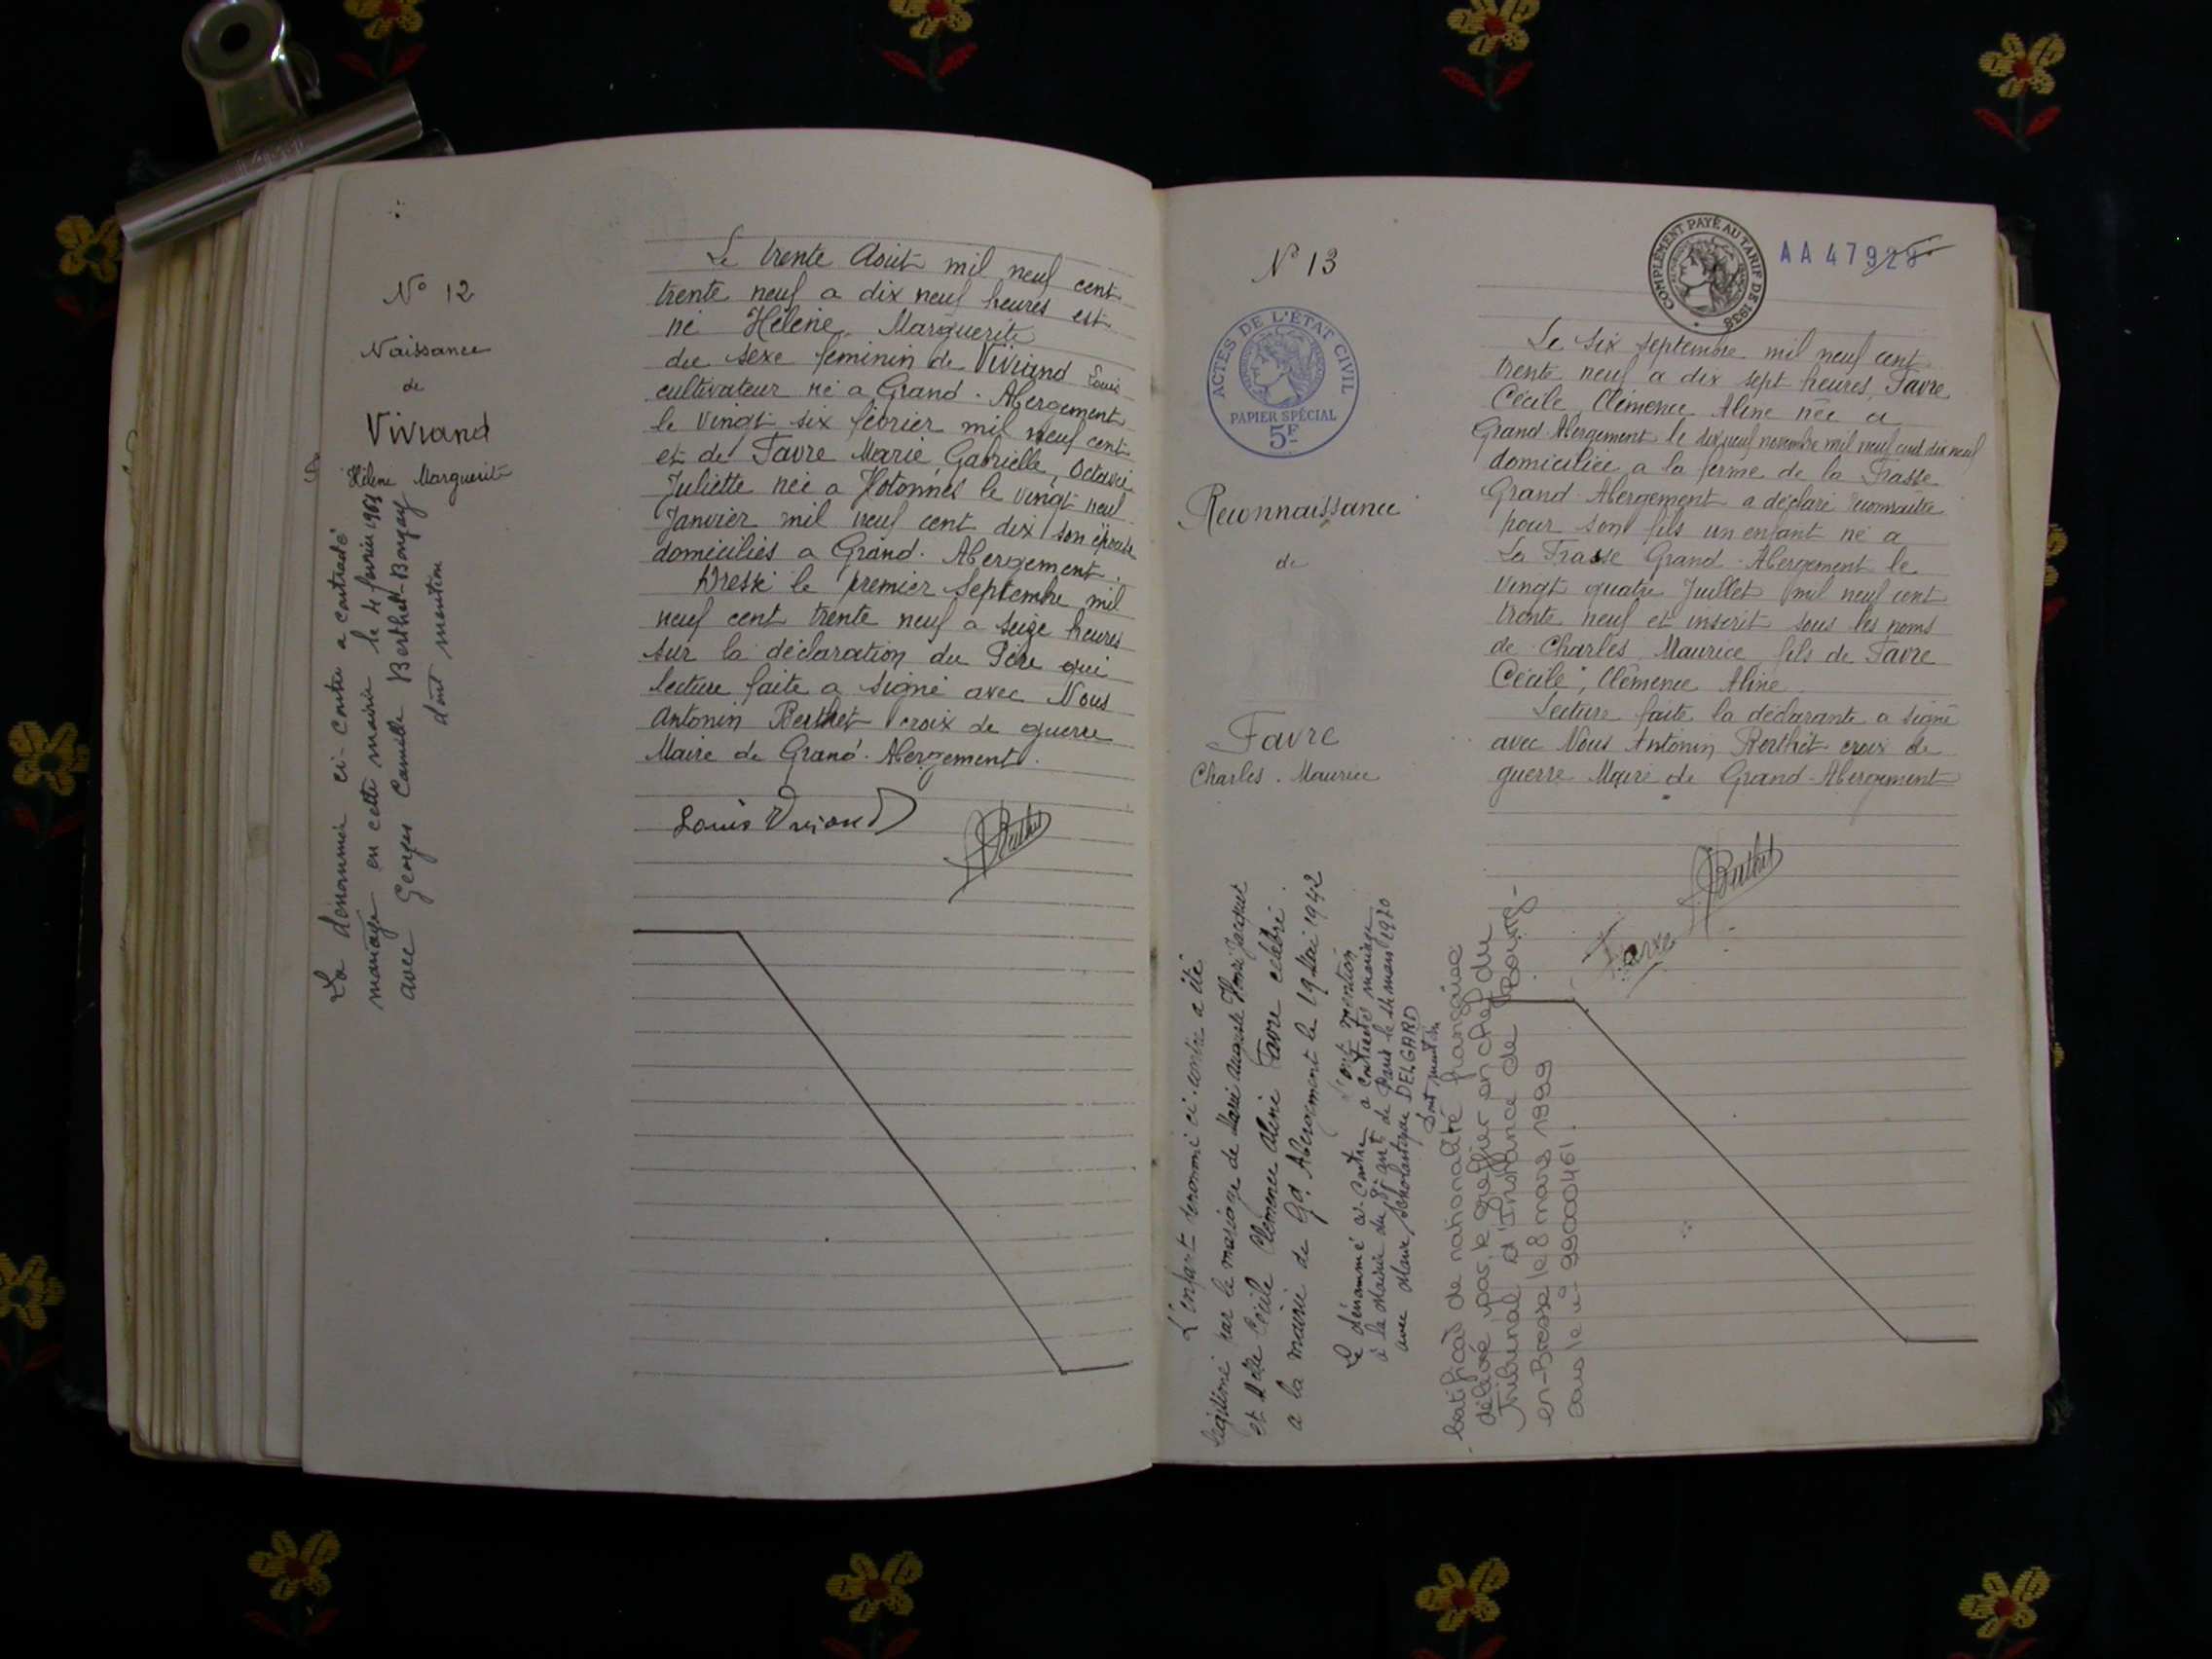 N° 12
Naissance
de
Vivrand
Hélène Marguerite
La dénommée ci-contre a contracté
mariage en cette mairie le 4 février 1963
avec Georges Camille Berthet-Bongay
dont mention
Le trente Août mil neuf cent
trente neuf a dix neuf heures est
né Hélène Marguerite
du sexe féminin de Vivrand Louis
cultivateur né a Grand-Abergement
le vingt six février mil neuf cent
et de Favre Marie, Gabrielle, Octavie
Juliette née a Hotonnes le vingt neuf
Janvier mil neuf cent dix son épouse
domiciliés a Grand-Abergement.
Dressé le premier Septembre mil
neuf cent trente neuf a seize heures
sur la déclaration du Père qui
lecture faite a signé avec Nous
Antonin Berthet croix de guerre
Maire de Grand-Abergement.
Louis Vivrand
Berthet
N° 13
ACTES DE L'ÉTAT CIVIL
PAPIER SPÉCIAL
5F
Reconnaissance
de
Favre
Charles. Maurice
L'enfant dénommé ci-contre a été
légitimé par le mariage de Marie Auguste Henri Jacquet
et Delle Cécile Clémence Aline Favre célébré
a la mairie de Gd. Abergement le 19 Mai 1942
Dont mention
Le dénommé ci-contre a contracté mariage
à la Mairie du de Paris le mars 1970
avec Marie Scholastique DELGARD
Dont mention
- Certificat de nationalité française
délivré par le greffier en chef du
Tribunal d'Instance de Bourg-
en-Bresse le 8 mars 1999
sous le n° 99000461.
COMPLÉMENT PAYÉ AU TARIF DE 1938
AA 47928
Le six septembre mil neuf cent
trente neuf a dix sept heures, Favre
Cécile, Clémence Aline née a
Grand Abergement le dix neuf novembre mil neuf cent dix neuf
domiciliée a la ferme de la Frasse
Grand-Abergement a déclaré reconnaître
pour son fils un enfant né a
La Frasse Grand-Abergement le
vingt quatre Juillet mil neuf cent
trente neuf et inscrit sous les noms
de Charles Maurice fils de Favre
Cécile, Clémence Aline
Lecture faite la déclarante a signé
avec Nous Antonin Berthet croix de
guerre Maire de Grand-Abergement
Berthet
Favre